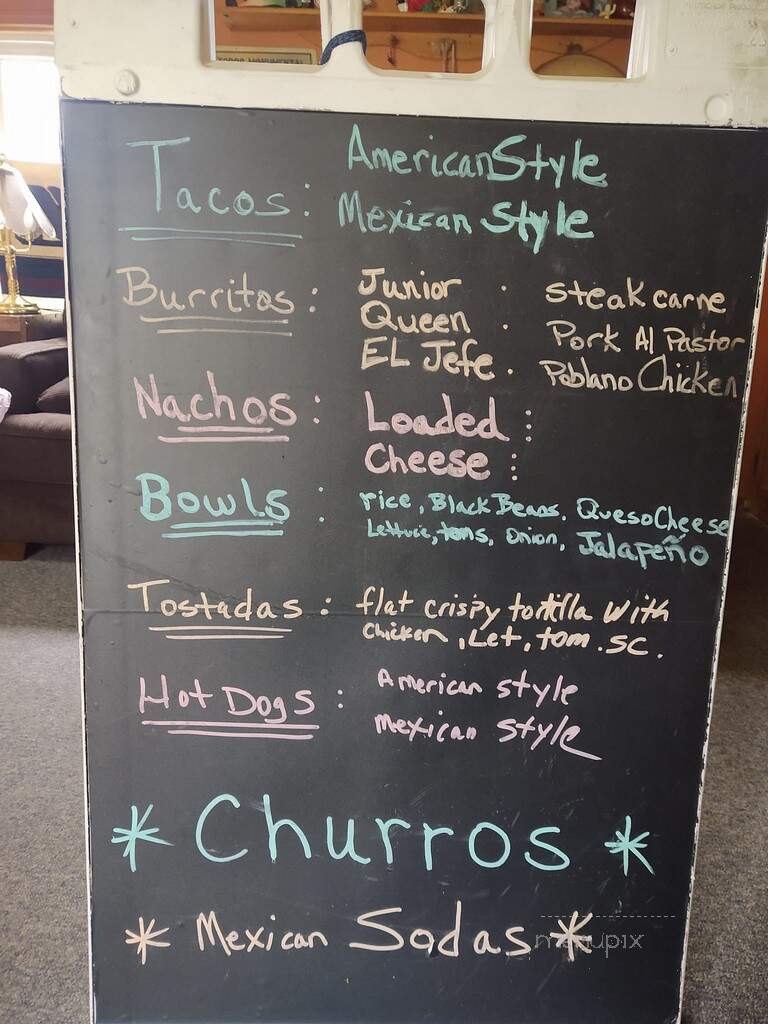 Tacos: American Style
Mexican Style
Burritos: Junior . steak carne
Queen . Pork Al Pastor
EL Jefe . Poblano Chicken
Nachos: Loaded :
Cheese :
Bowls: rice, Black Beans, Queso Cheese
Lettuce, toms, Onion, Jalapeño
Tostadas: flat crispy tortilla with
chicken, Let, tom. SC.
Hot Dogs: American style
mexican style
* Churros *
* Mexican Sodas *
menupix